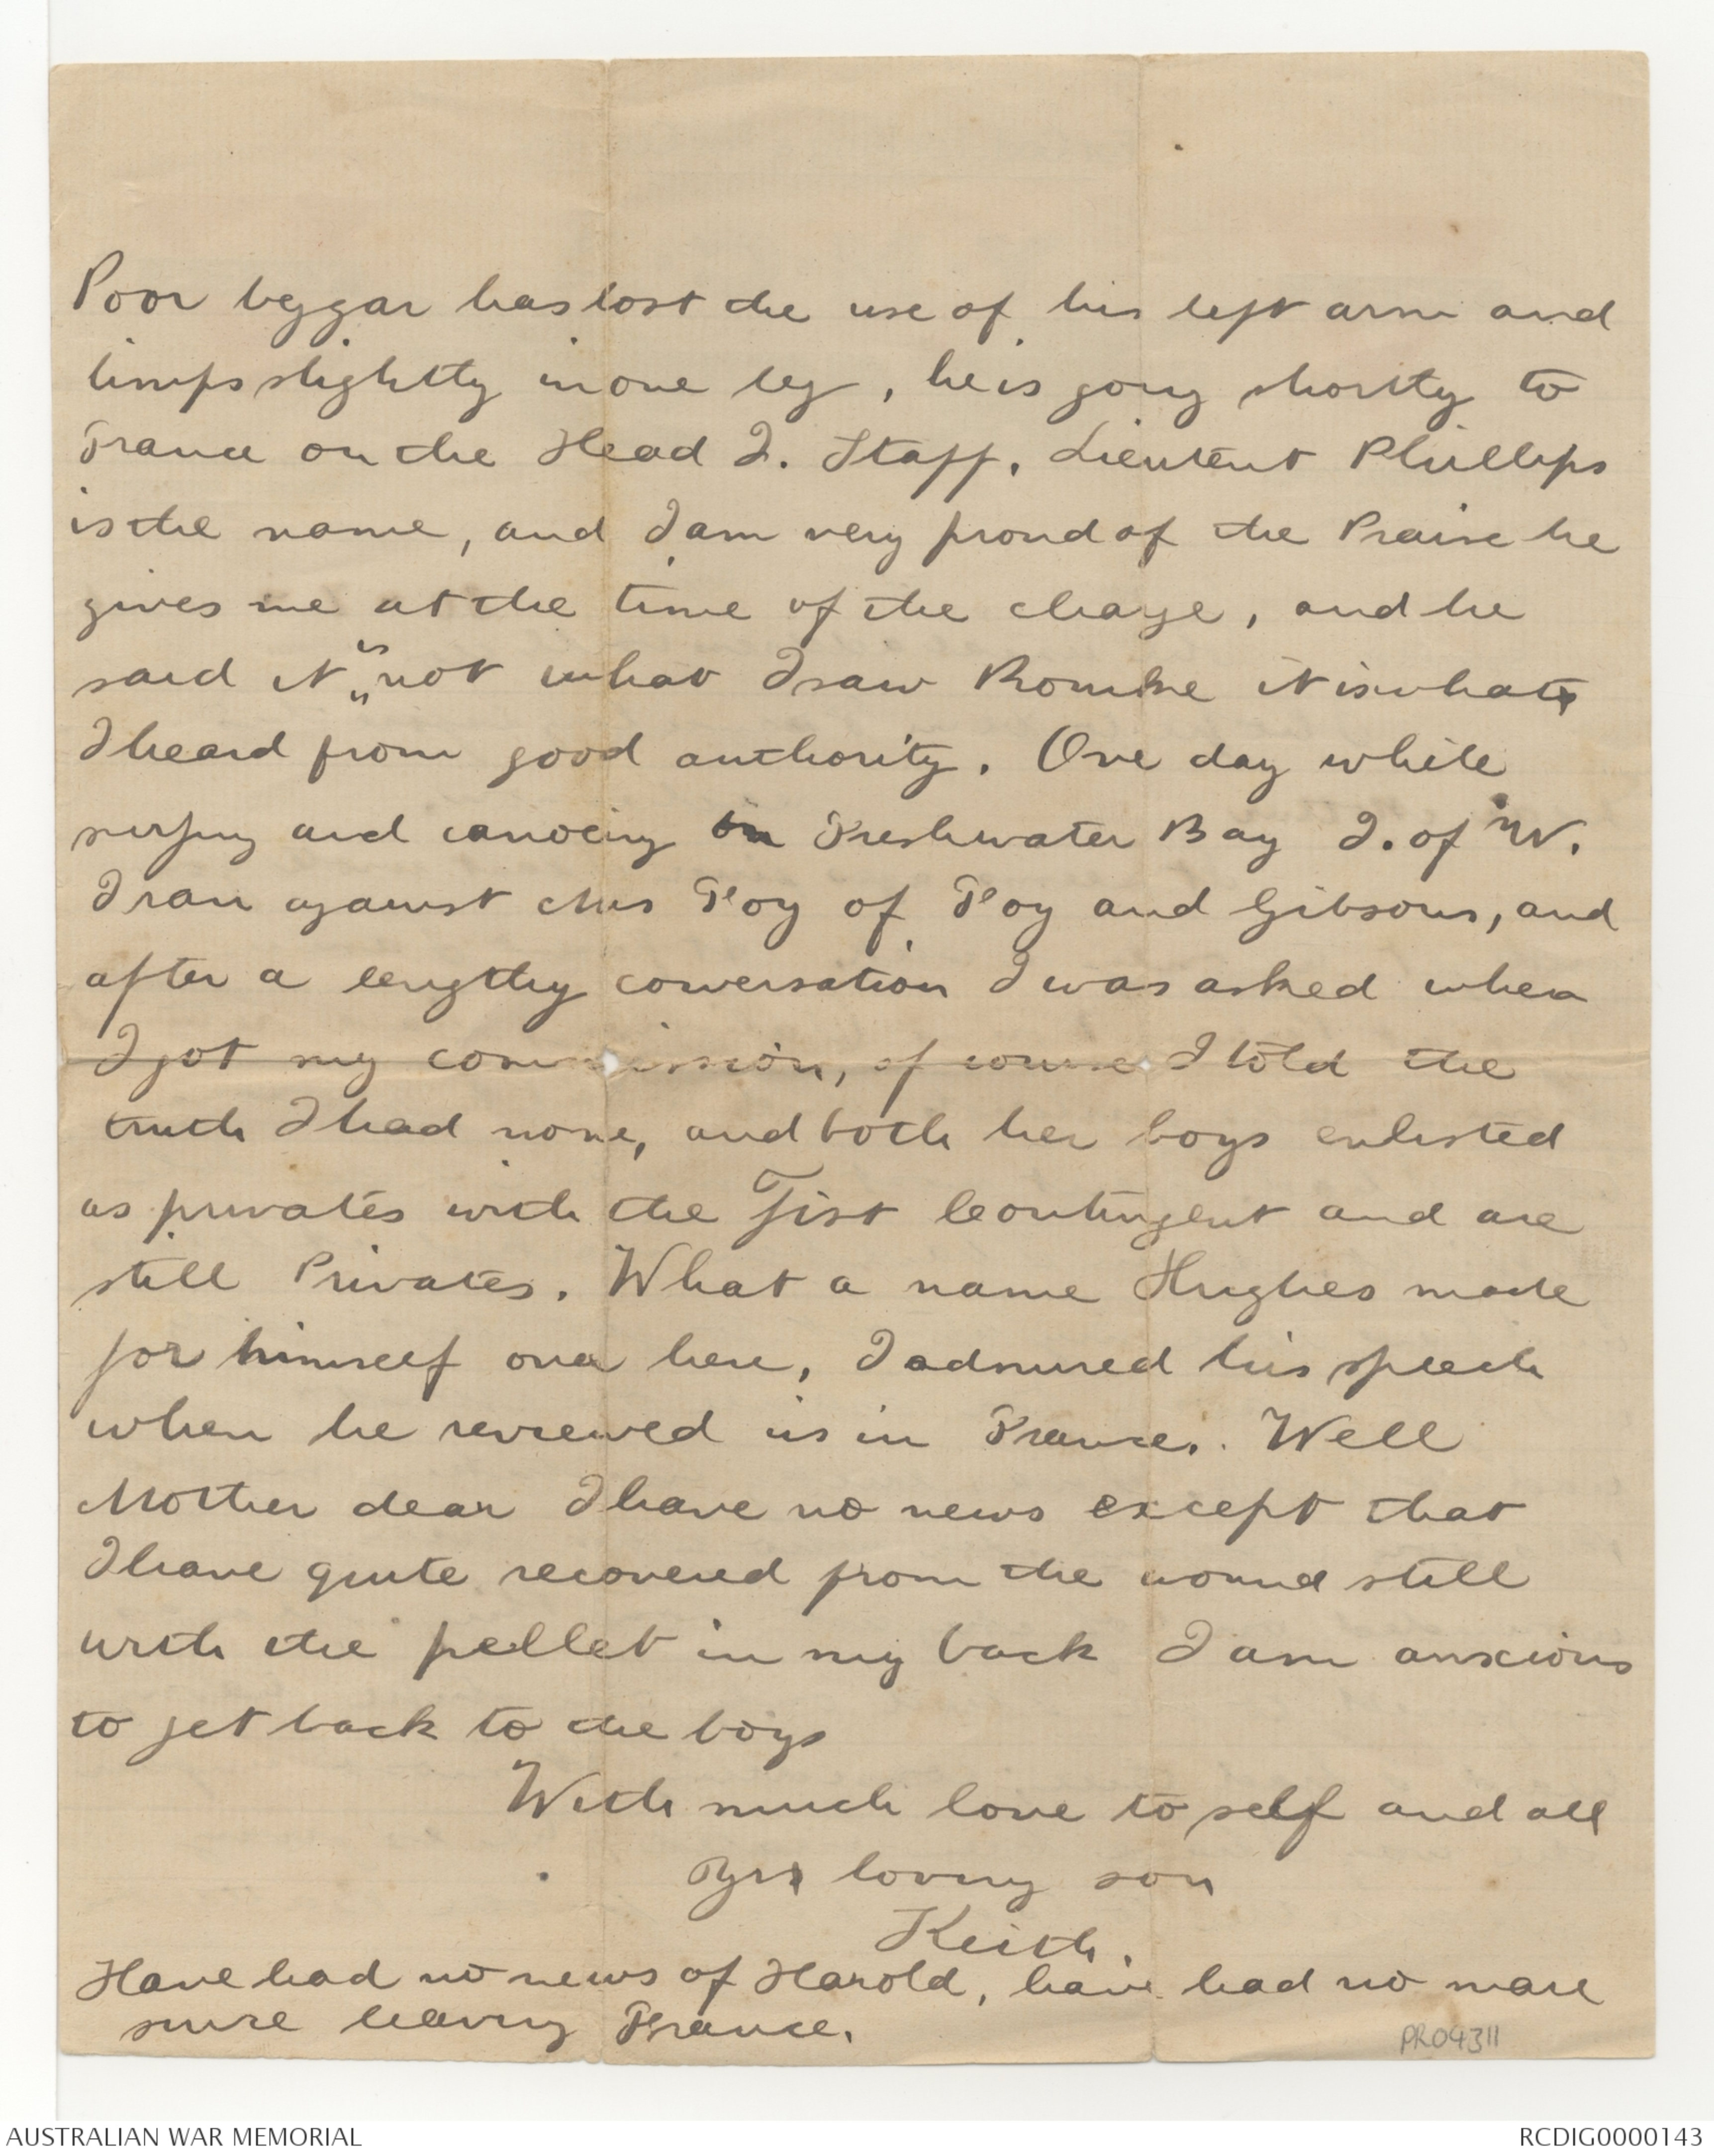 Poor beggar has lost the use of his left arm and
limps slightly in one leg, he is going shortly to
France on the Head Q. Staff. Lieutent Phillips
is the name, and I am very proud of the Praise he
gives me at the time of the charge, and he
said it is not what I saw Romke it is what
I heard from good authority. One day while
surfing and canoeing in Freshwater Bay I. of W.
I ran against Mrs Foy of Foy and Gibsons, and
after a lengthy conversation I was asked when
I got my commission, of course I told the
truth I had none, and both her boys enlisted
as privates with the First Contingent and are
still Privates. What a name Hughes made
for himself over here, I admired his speech
when he reviewed us in France. Well
Mother dear I have no news except that
I have quite recovered from the wound still
with the pellet in my back I am anxious
to get back to the boys
With much love to self and all
Yrs loving son
Keith.
Have had no news of Harold, have had no mail
since leaving France.
PR04311
AUSTRALIAN WAR MEMORIAL
RCDIG0000143